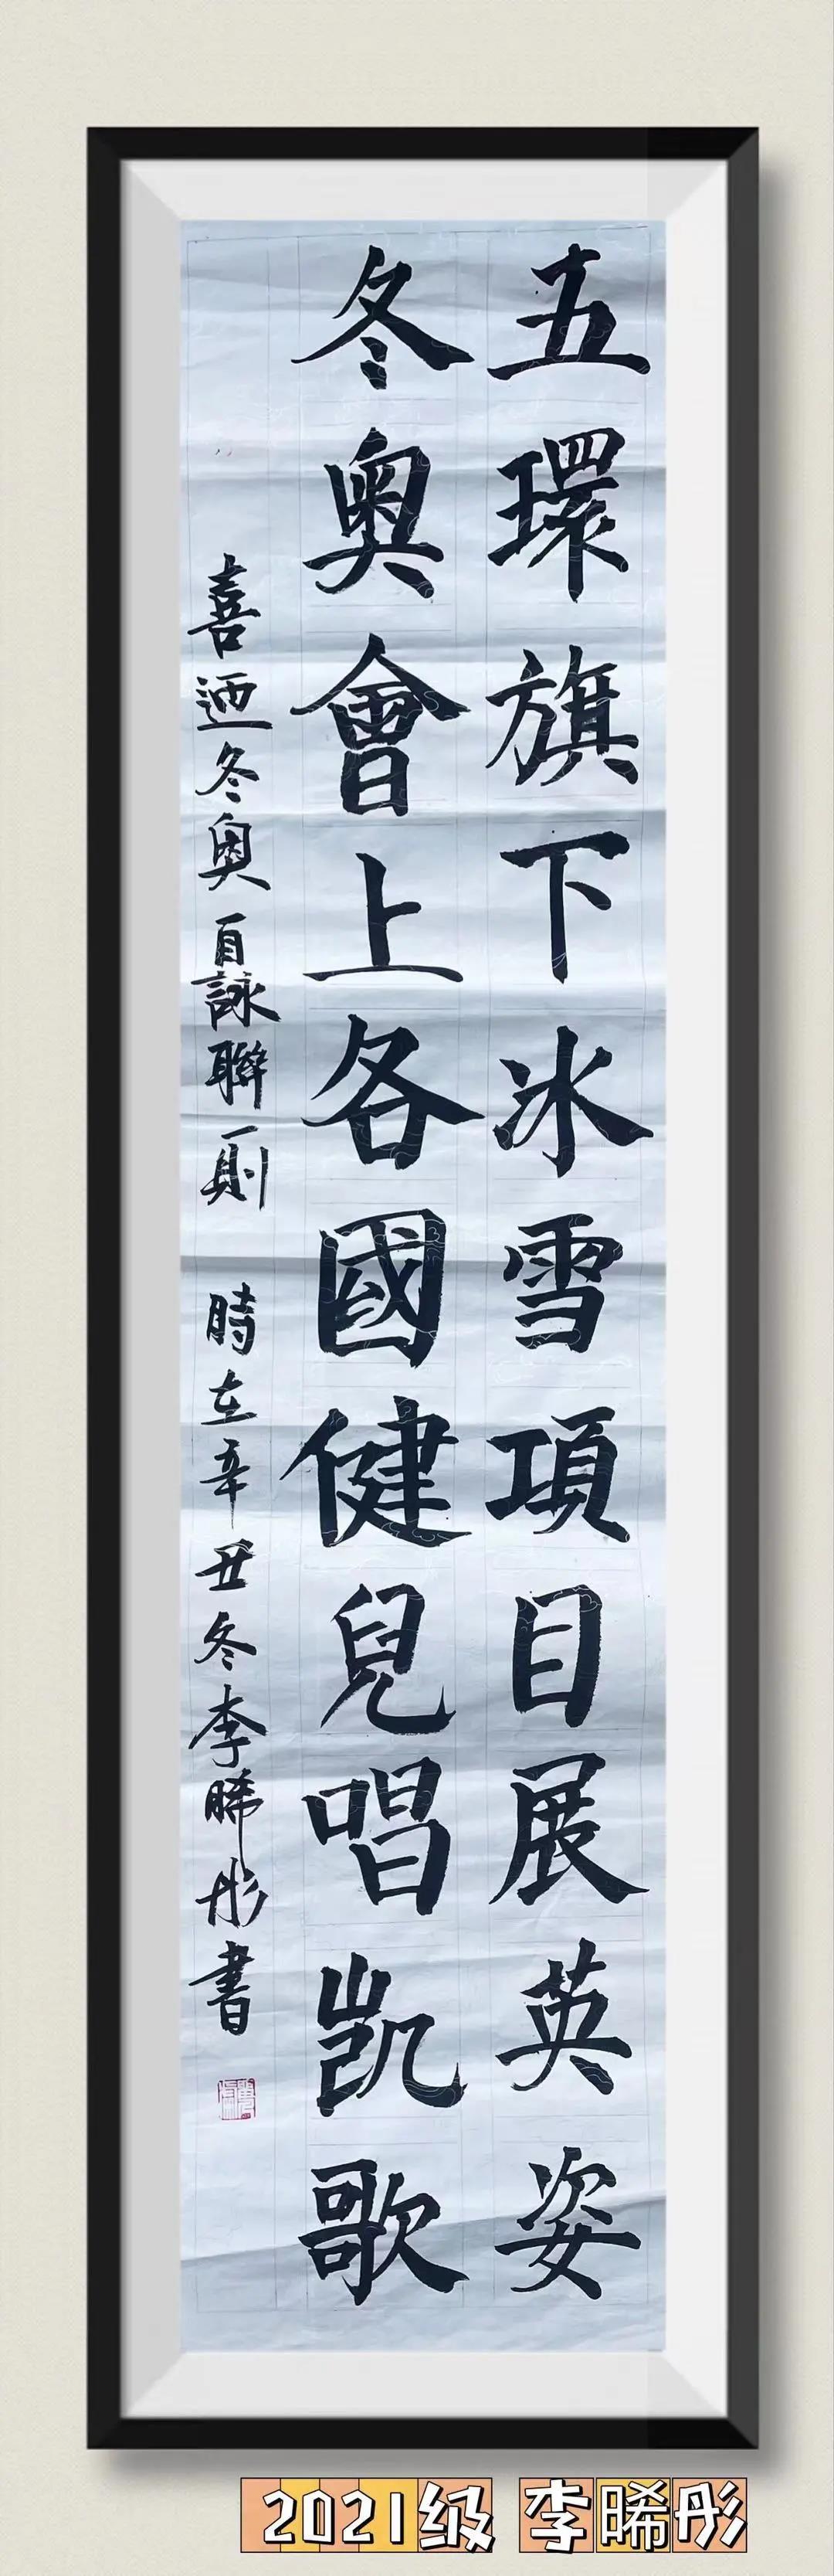 五環旗下冰雪項目展英姿
冬奧會上各國健兒唱凱歌
喜迺冬奧自詠聯一則 時在辛丑冬李晞彤書
2021级 李晞彤